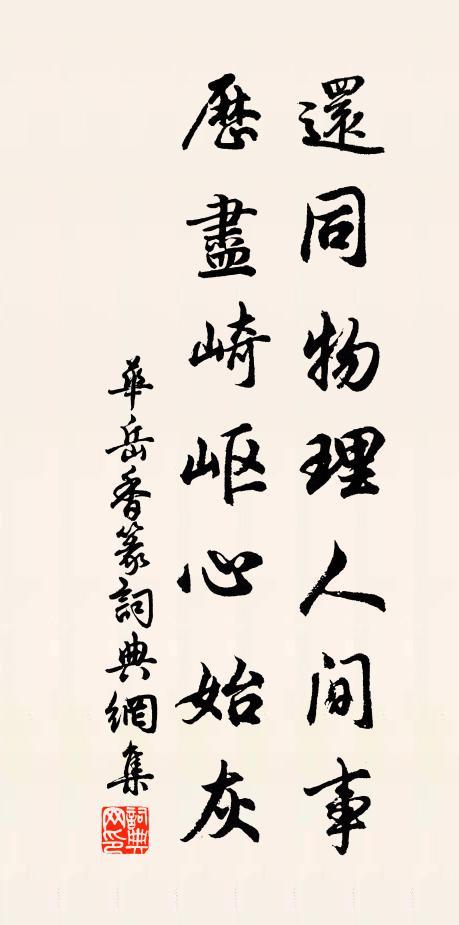 還同物理人间事
歷盡崎岖心始灰
華岳香篆詞典網集
詞典网印